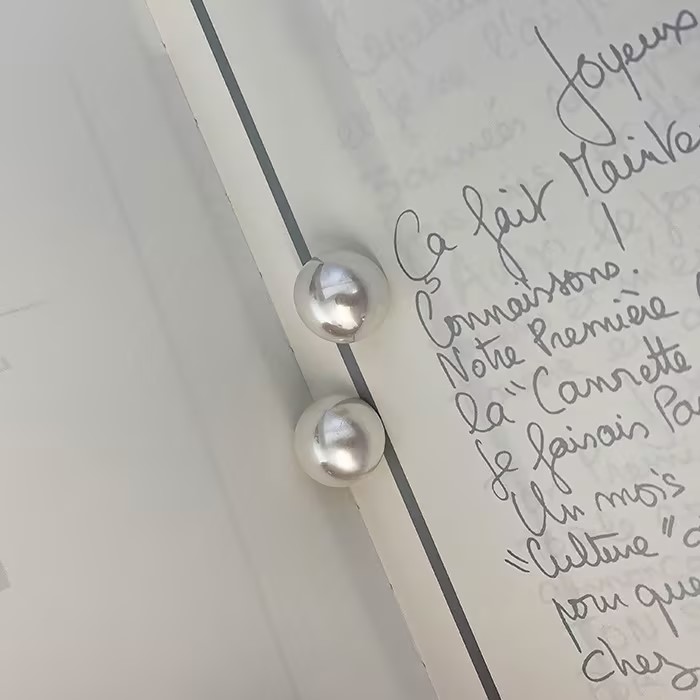 Joyeux
Ça fait Mainte
Connaissons.
Notre Première
la "Cannette
je faisais Pa
Un mois
"Culture"
pour que
chez